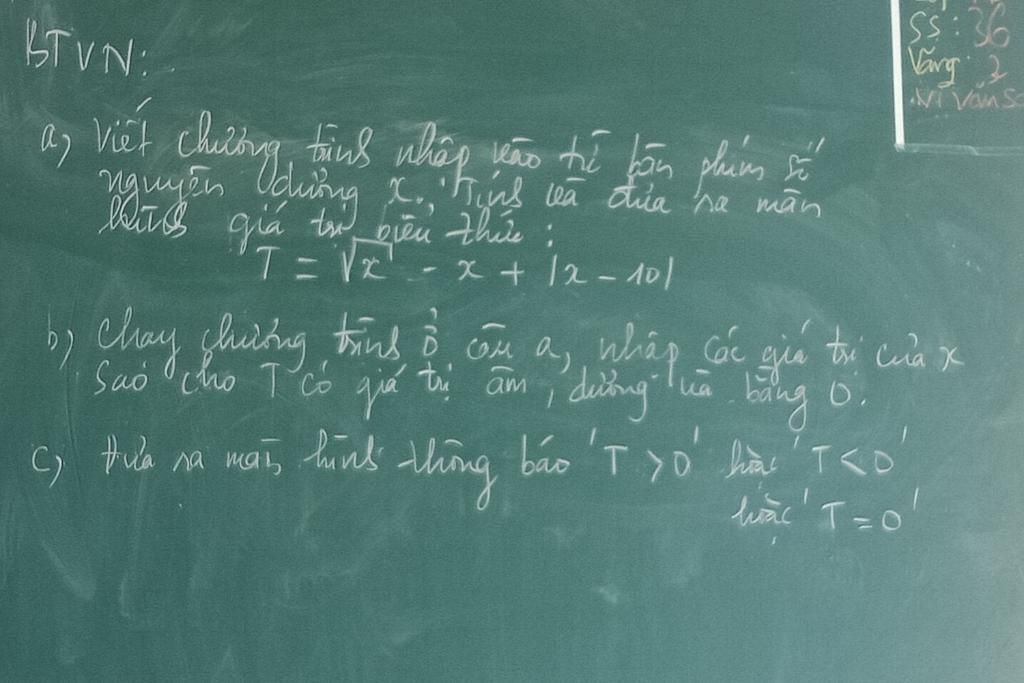 BTVN:
a, Viết chương trình nhập vào từ bàn phím số
nguyên dương x. Tính và đưa ra màn
hình giá trị biểu thức:
T = √x - x + |x - 10|
b, Chạy chương trình ở câu a, nhập các giá trị của x
sao cho T có giá trị âm, dương và bằng 0.
c, đưa ra màn hình thông báo 'T > 0' hoặc 'T < 0'
hoặc 'T = 0'
SS: 36
Vắng: 2